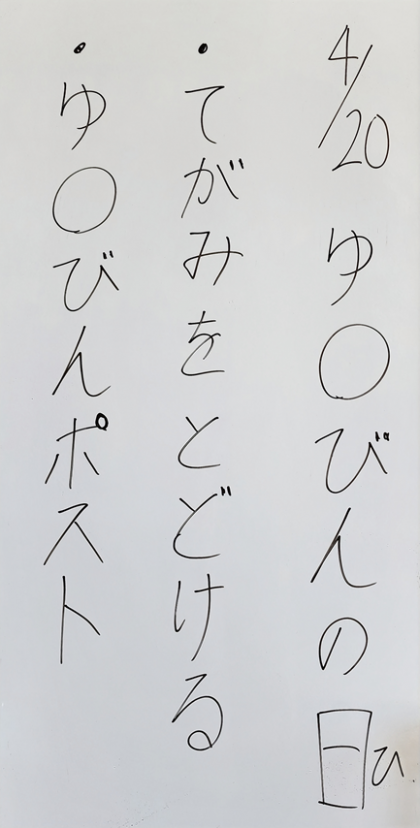 4/20 ゆ〇びんの日ひ
・てがみをとどける
・ゆ〇びんポスト